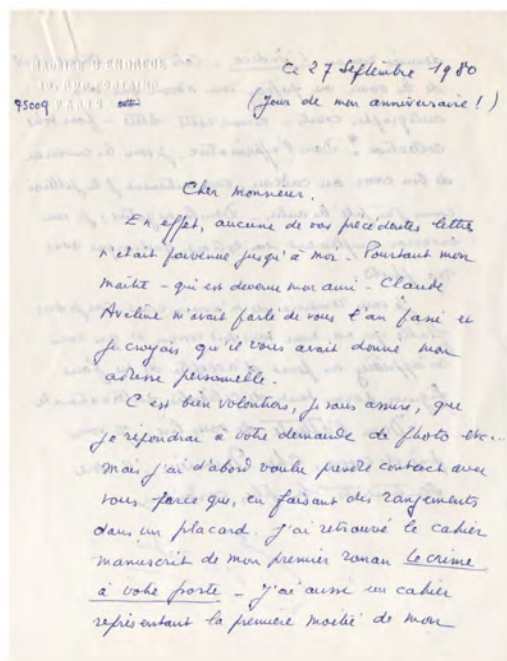 75009 PARIS
Ce 27 Septembre 1980
(Jour de mon anniversaire !)
Cher Monsieur.
En effet, aucune de vos précédentes lettre
n'était parvenue jusqu'à moi - Pourtant mon
maître - qui est devenu mon ami - Claude
Aveline m'avait parlé de vous l'an passé et
je croyais qu'il vous avait donné mon
adresse personnelle.
C'est bien volontiers, je vous assure, que
je répondrai à votre demande de photo etc...
mais j'ai d'abord voulu prendre contact avec
vous parce que, en faisant des rangements
dans un placard j'ai retrouvé le cahier
manuscrit de mon premier roman le crime
à votre porte - J'ai aussi un cahier
représentant la première moitié de mon